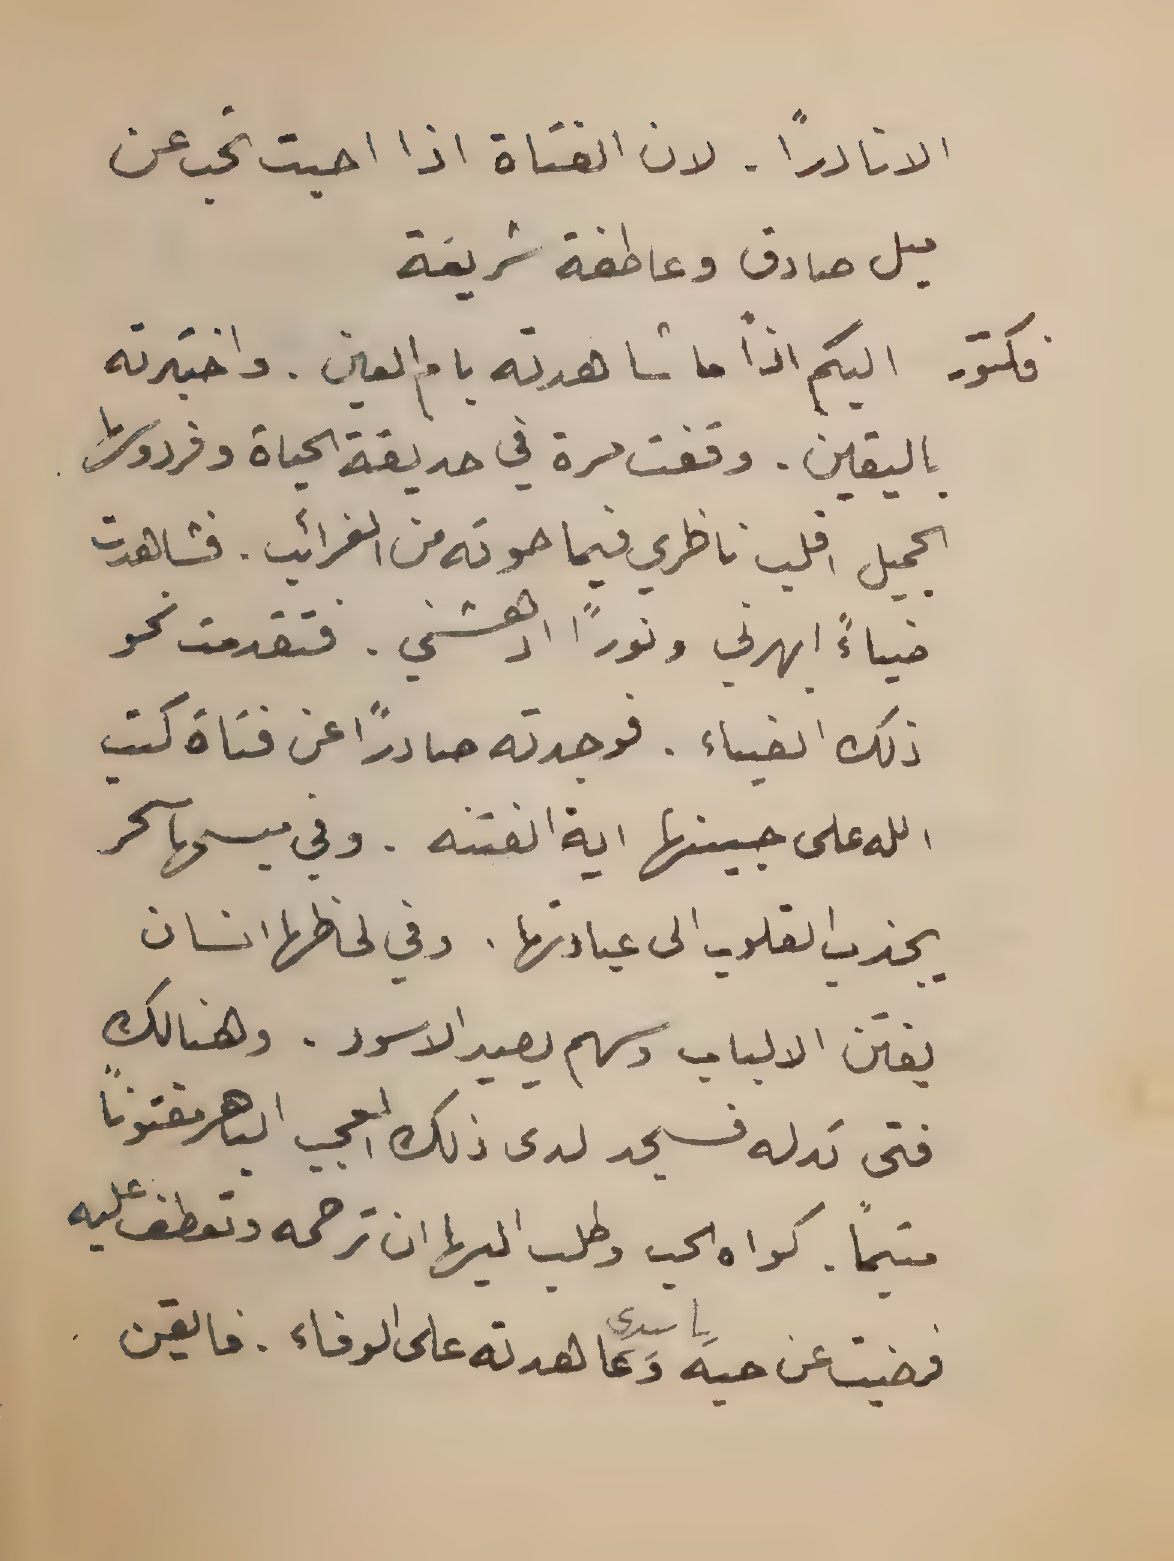 الا نادرًا . لان الفتاة اذا احبت تحب عن
ميل صادق وعاطفة شريفة
فكتور اليكم اذًا ما شاهدته بام العين . واختبرته
باليقين . وقفت مرة في حديقة الحياة وفردوسها
الجميل اقلب ناظري فيما حوته من الغرائب . فشاهدت
ضياءً ابهرني ونورًا ادهشني . فتقدمت نحو
ذلك الضياء . فوجدته صادرًا عن فتاة كتب
الله على جبينها اية الفتنه . وفي مبسمها سحر
يجذب القلوب الى عبادتها . وفي لحاظها انسان
يفتن الالباب وسهم يصيد الاسود . وهنالك
فتى تدله فسجد لدى ذلك العجب الباهر مفتونًا
متيمًا . كواه الحب وطلب اليها ان ترحمه وتعطف عليه
يا سيدي
فرضيت عن حبه وَعَاهدته على الوفاء . فايقن